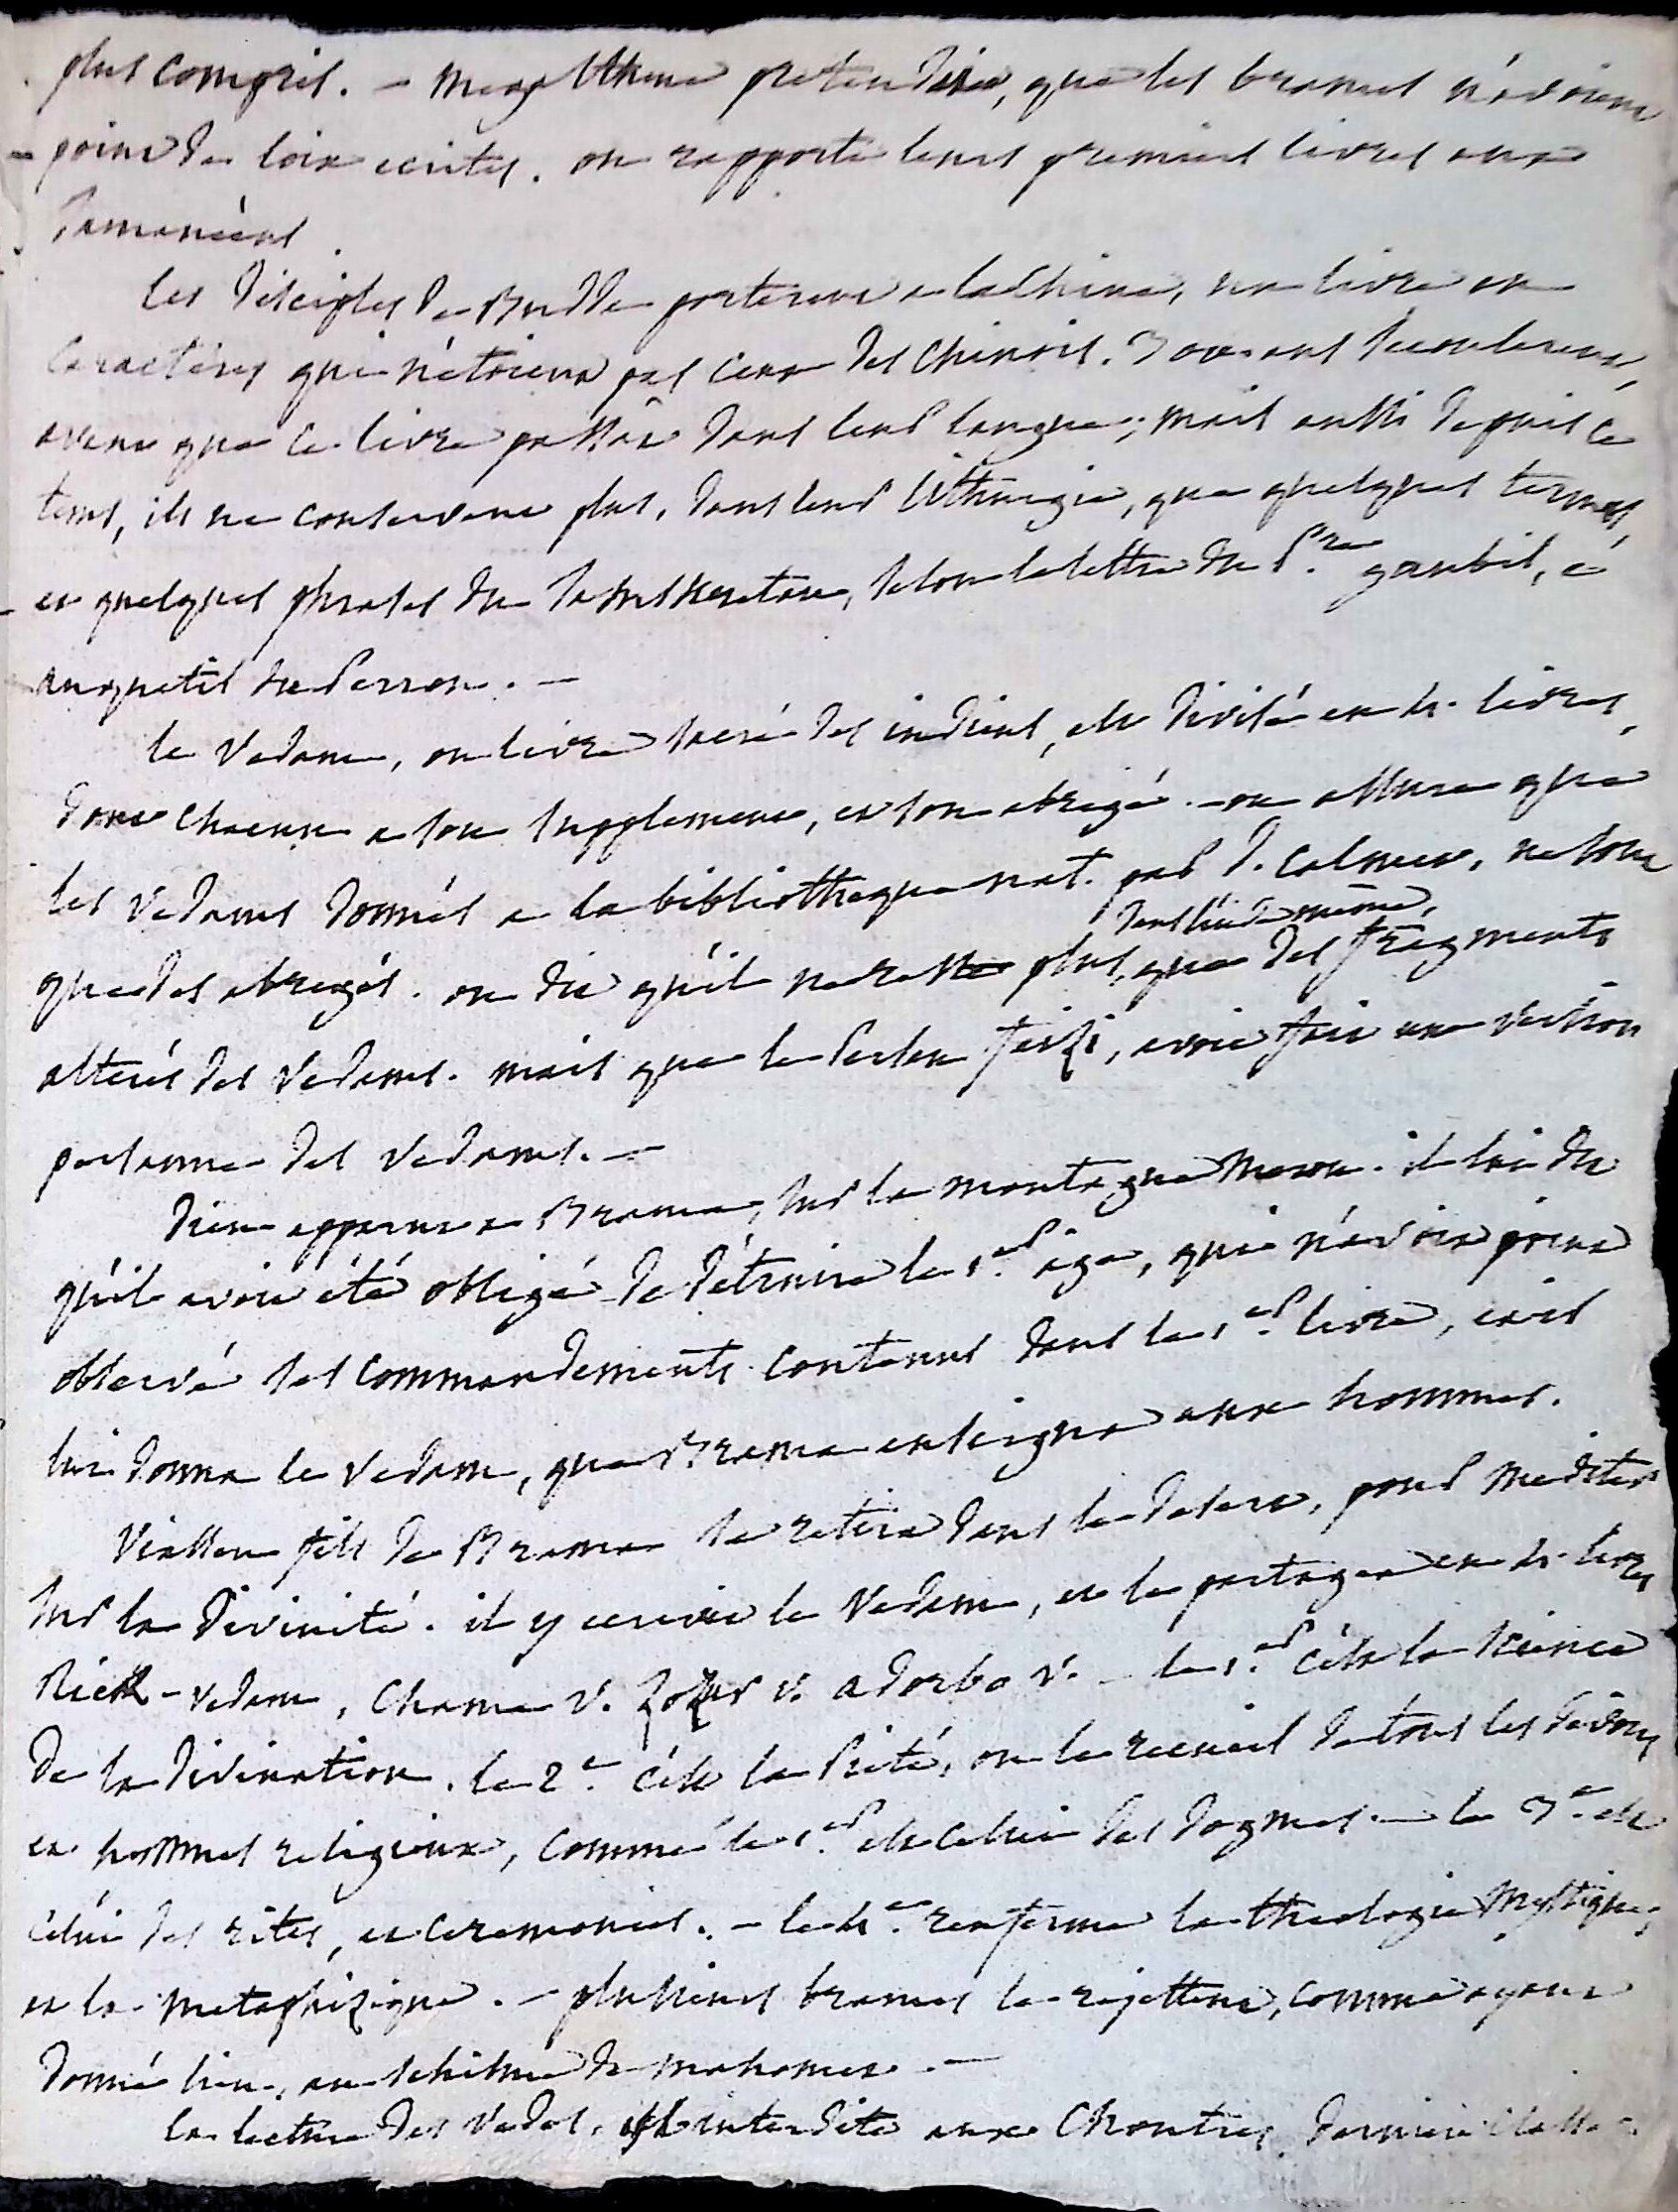 plus compris. - Megasthene pretendoit, que les brames n'avoient
point de loix ecrites. on rapporte leurs premiers livres aux
Samanéens.
les disciples de Budda porterent a la Chine, un livre en
caractéres qui n'étoient pas ceux des chinois. 3 ans s'ecoulerent,
avant que ce livre passâs dans leur langue; mais aussi depuis ce
tems, ils ne conservent plus, dans leur lithurgie, que quelques termes,
et quelques phrases du samskretan, selon la lettre du P.re gaubil, a
anquetil du Perron. -
le Vedam, ou livre sacré des indiens, est divisé en 4. livres,
dont chacun a son supplement, et son abregé. - on assure que
les vedams donnés a la bibliotheque nat. par d. calmet, ne sont
que des abregés. on dit qu'il ne reste plus, dans l'inde même, que des fragments
alterés des vedams. mais que le Persan feizi, avoit fait une version
persanne des vedams. -
Dieu apparut a Brama, sur la montagne Merou. il lui dit
qu'il avoit été obligé de détruire le 1.er age, qui n'avoit point
observé les commandements contenus dans le 1.er livre, et il
lui donna le vedam, que Brama enseigna aux hommes.
Viassen fils de Brama se retira dans le desert, pour mediter
sur la Divinité. il y ecrivit le Vedam, et le partagea en 4. livres
Rick-vedam, Chama v. Zozur v. adorbo v. - le 1.er c'est la science
de la divination. le 2.e c'est la Piété, ou le recueil de tous les devoirs
et hommes religieux, comme le 1.er est celui des dogmes. - le 3.e est
celui des rites, et ceremonies. - le 4.e renferme la theologie mystique,
et la metaphizique. - plusieurs brames le rejettent, comme ayant
donné lieu, au schisme de mahomet. -
la lecture des vedas, est interdite aux Choutres, derniere classe